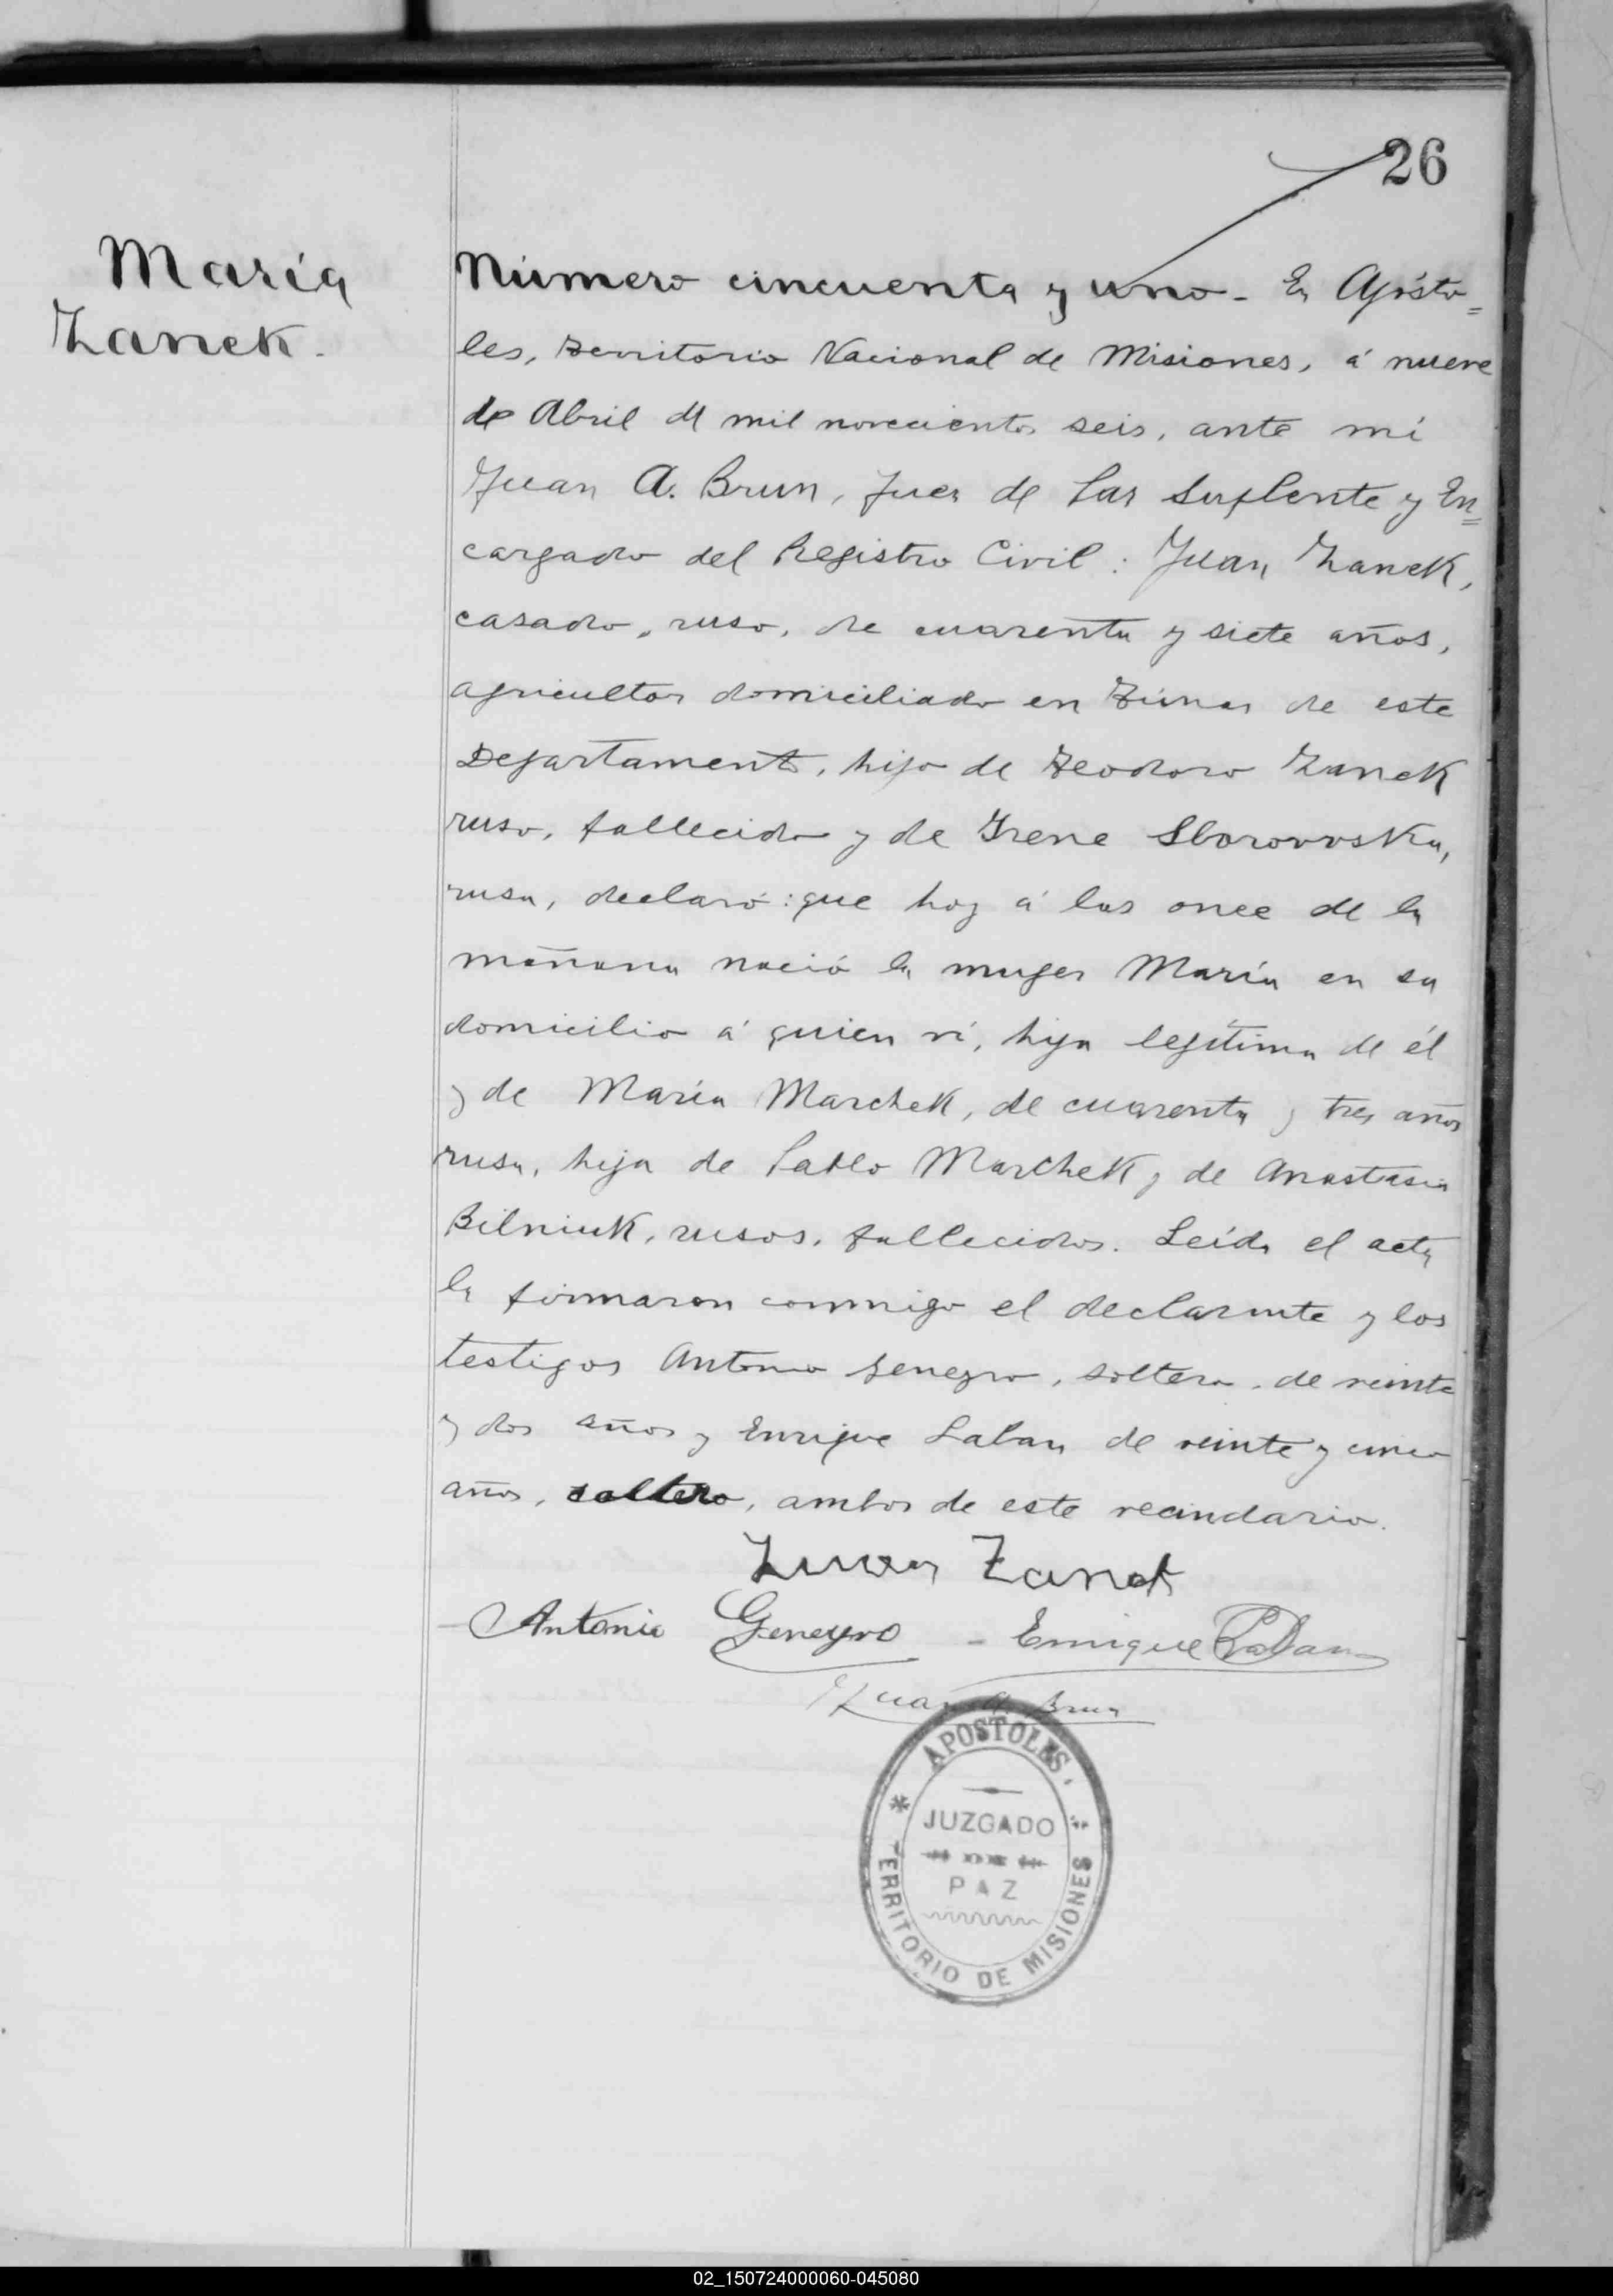 26
María
Zanek.
Número cincuenta y uno. En Apósto=
les, Territorio Nacional de Misiones, á nueve
de Abril de mil novecientos seis, ante mi
Juan A. Brun, Juez de Paz Suplente y En=
cargado del Registro Civil: Juan Zanek,
casado, ruso, de cuarenta y siete años,
agricultor domiciliado en Túnas de este
Departamento, hijo de Teodoro Zanek
ruso, fallecido y de Irene Sborovvska,
rusa, declaró: que hoy á las once de la
mañana nació la muger María en su
domicilio á quien ví, hija legítima de él
y de María Marchek, de cuarenta y tres años
rusa, hija de Pablo Marchek y de Anastasia
Bilniuk, rusos, fallecidos. Leída el acta
la firmaron conmigo el declarante y los
testigos Antonio Geneyro, soltero, de veinte
y dos años y Enrique Laban de veinte y cinco
años, soltero, ambos de este vecindario.
Zanek
Antonio Geneyro - Enrique Laban
Juan A. Brun
APOSTOLES,
JUZGADO
PAZ
TERRITORIO DE MISIONES
02_150724000060-045080